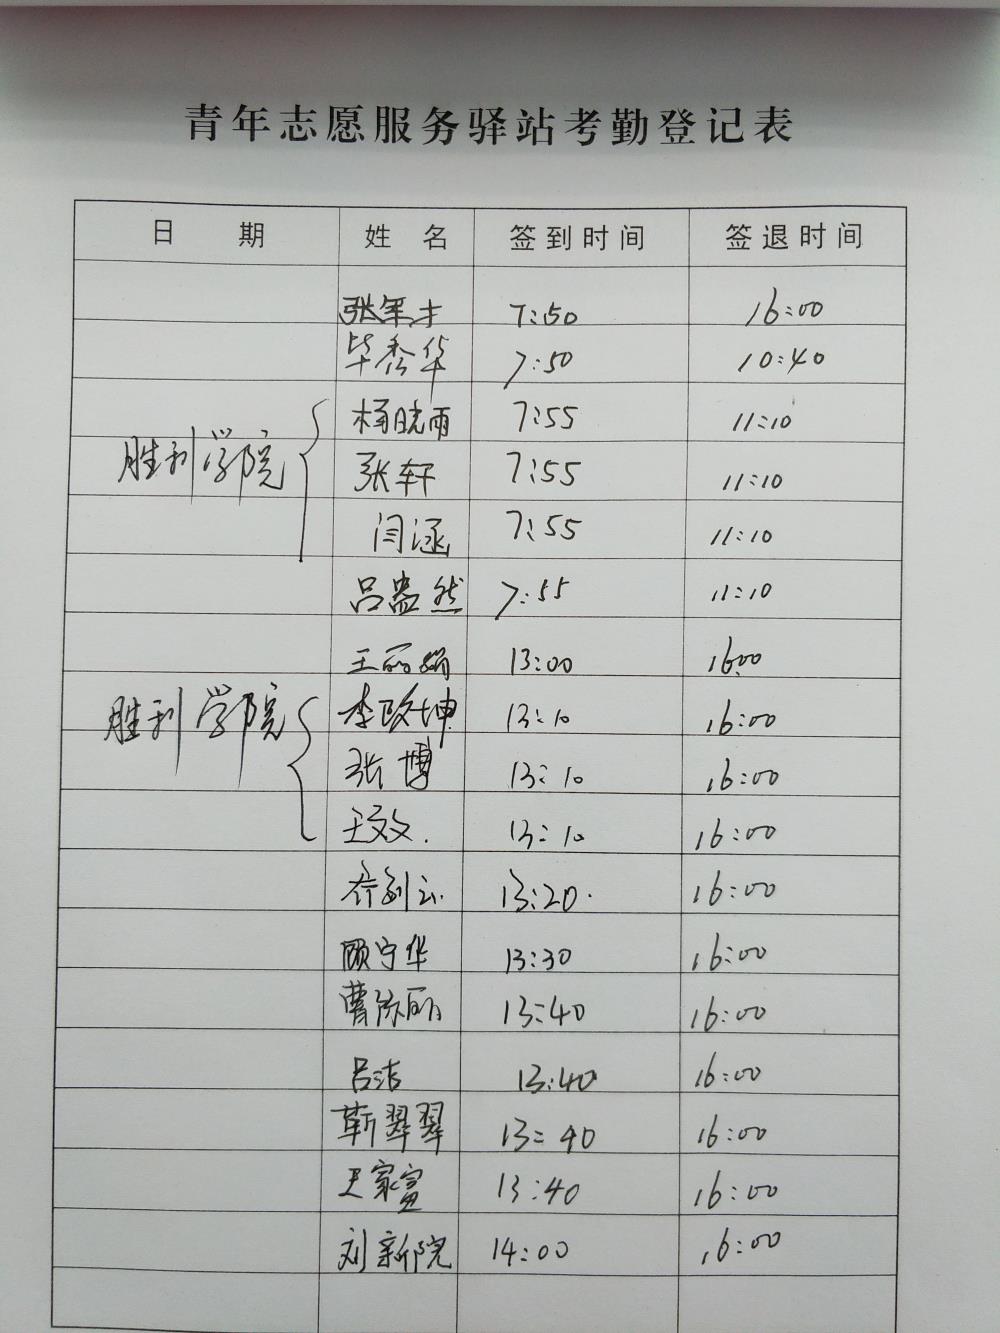 青年志愿服务驿站考勤登记表
日 期 姓 名 签到时间 签退时间
张军才 7:50 16:00
毕秀华 7:50 10:40
杨晓雨 7:55 11:10
胜利学院 张轩 7:55 11:10
闫涵 7:55 11:10
吕盎然 7:55 11:10
王丽娟 13:00 16:00
胜利学院 李政坤 13:10 16:00
张博 13:10 16:00
王政文. 13:10 16:00
13:20. 16:00
顾宁华 13:30 16:00
13:40 16:00
吕洁 13:40 16:00
靳翠翠 13:40 16:00
王家富 13:40 16:00
刘新院 14:00 16:00